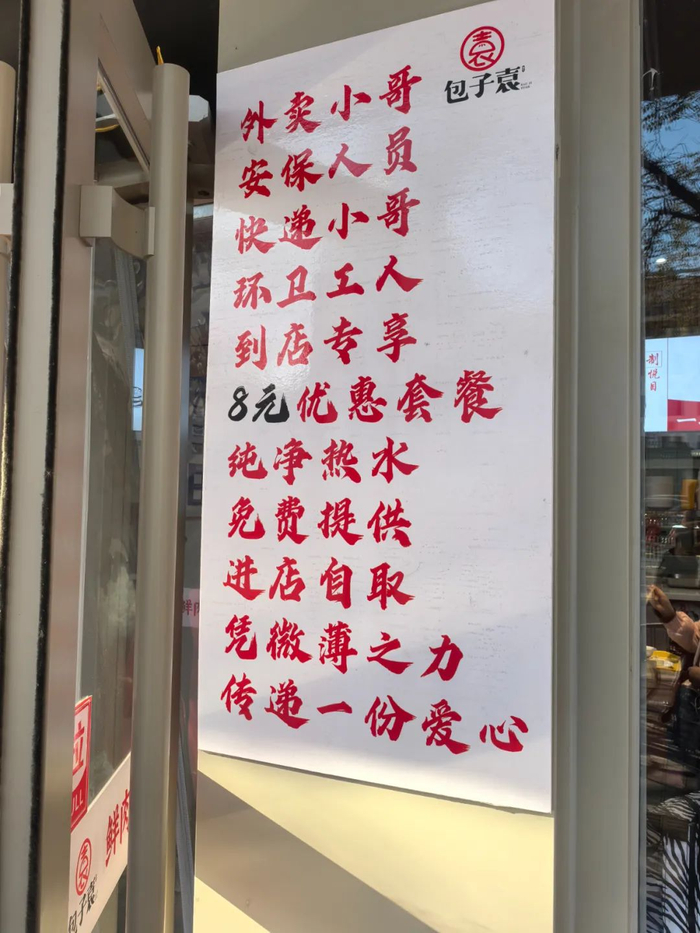 袁
包子袁
外卖小哥
安保人员
快递小哥
环卫工人
到店专享
8元优惠套餐
纯净热水
免费提供
进店自取
凭微薄之力
传递一份爱心
制悦目
拉
鲜肉
袁
包子袁